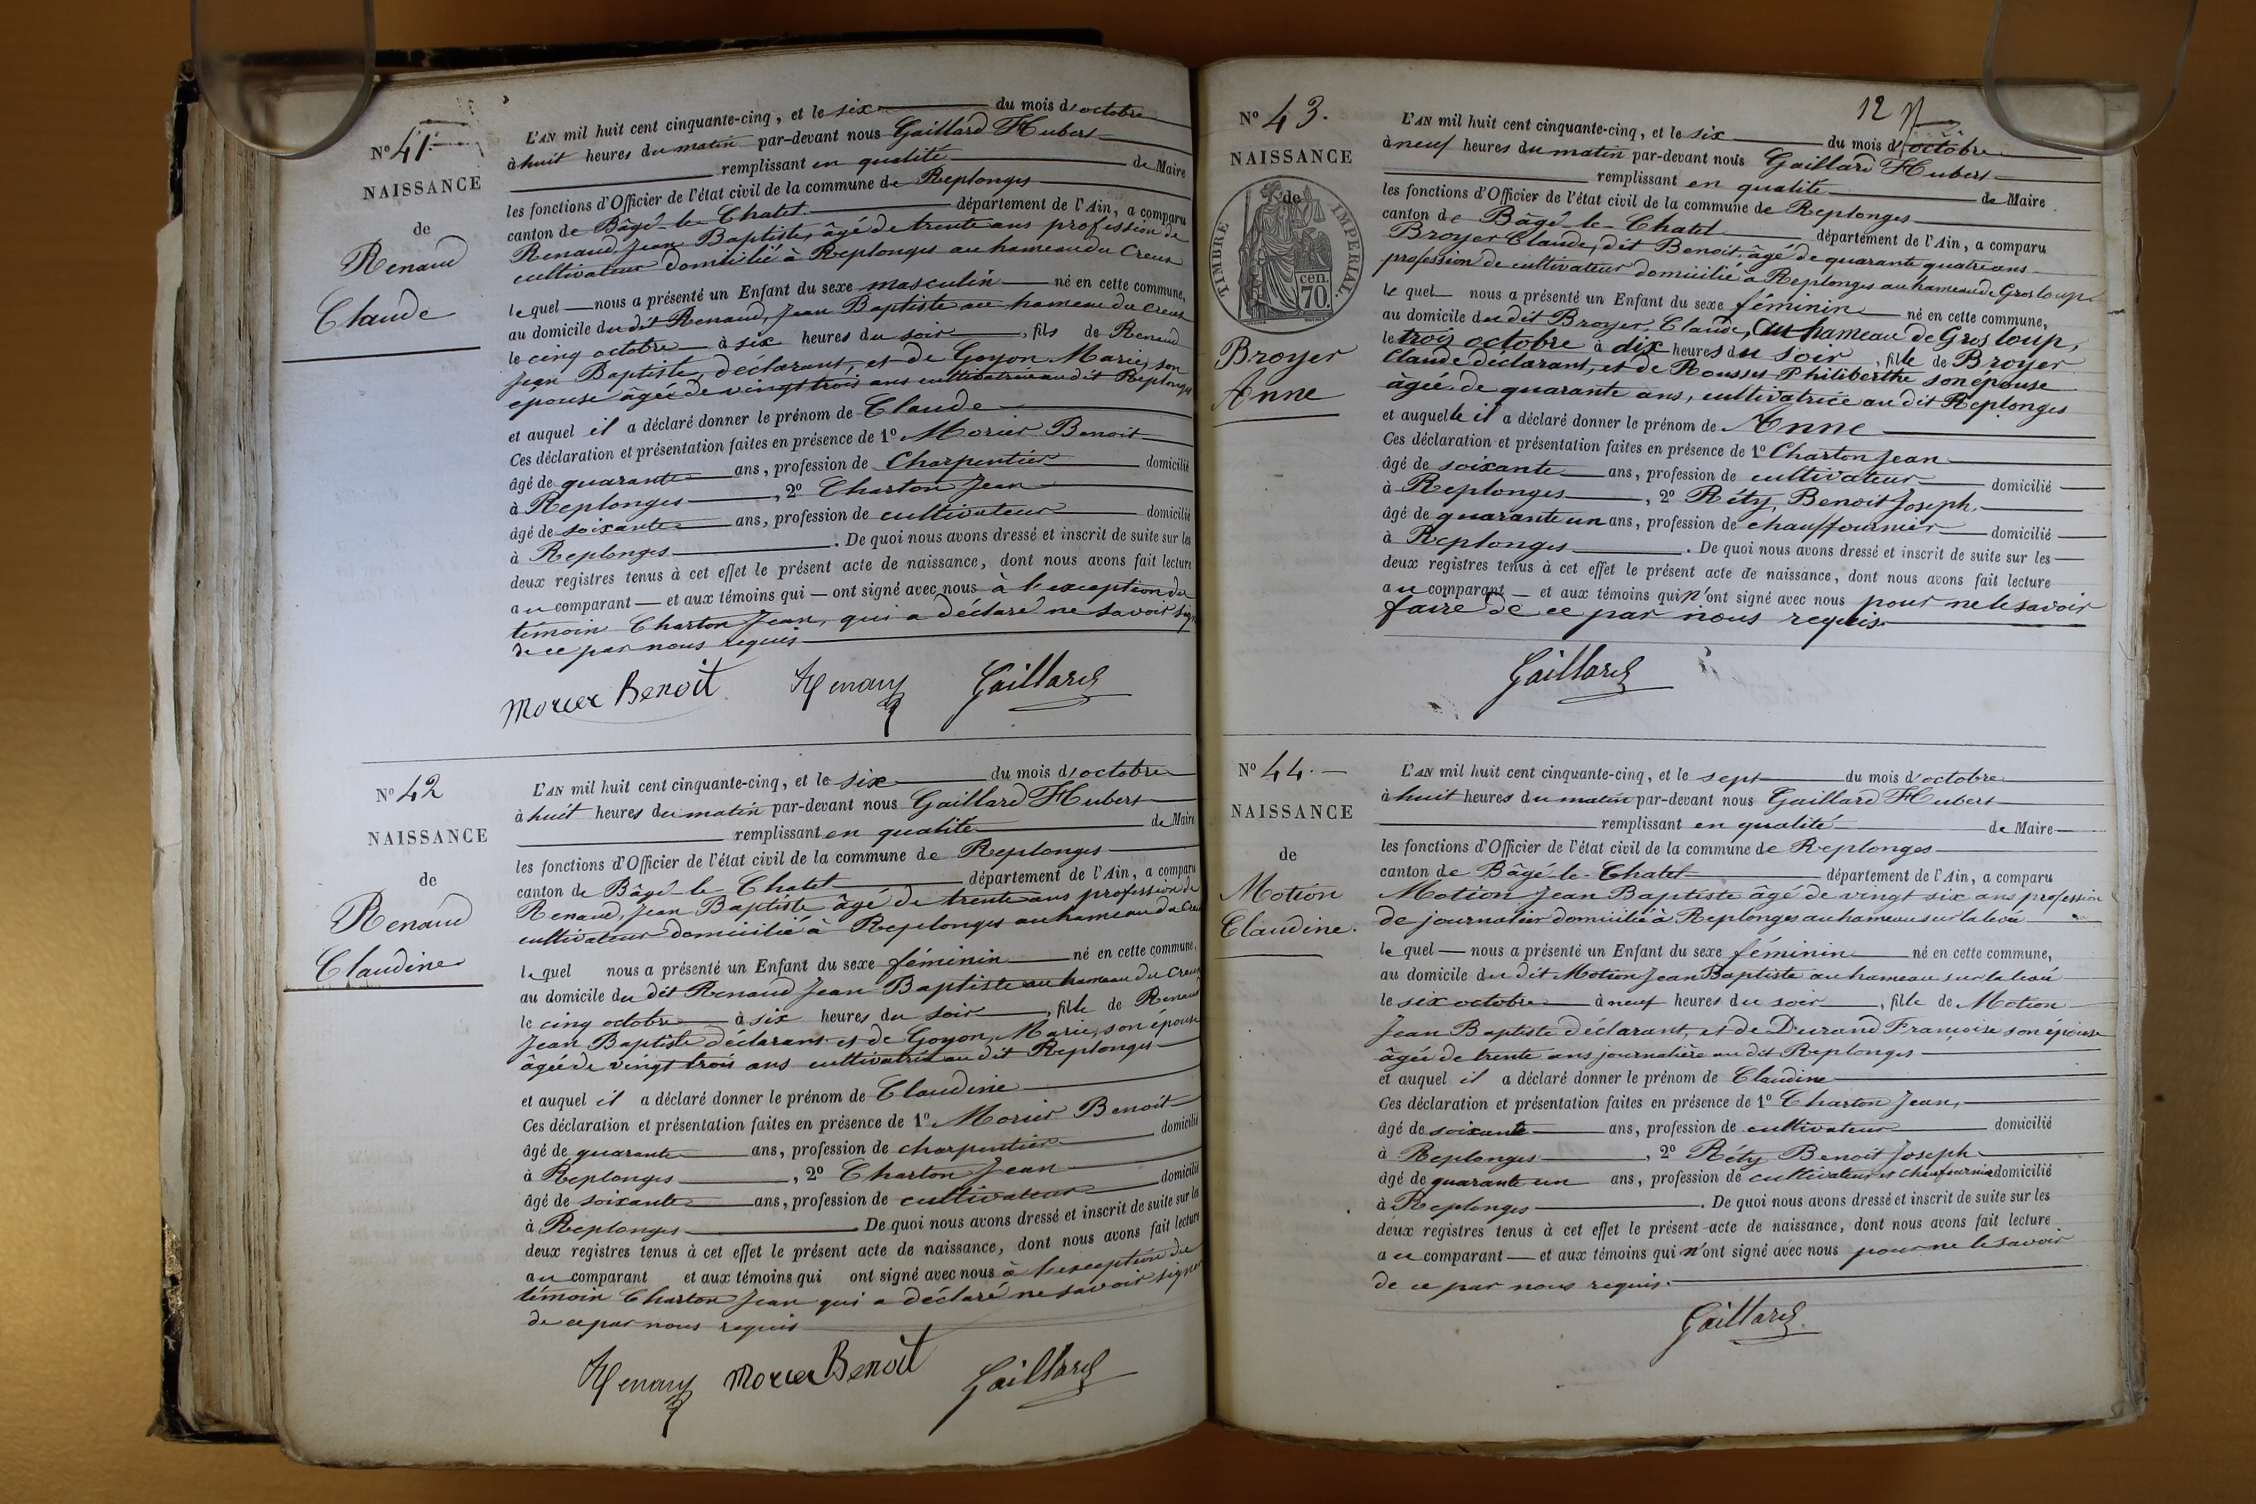 No 41
NAISSANCE
de
Renaud
Claude
L'AN mil huit cent cinquante-cinq, et le six du mois d'octobre
à huit heures du matin par-devant nous Gaillard Hubert
remplissant en qualité de Maire
les fonctions d'Officier de l'état civil de la commune de Replonges
canton de Bâgé-le-Chatel département de l'Ain, a comparu
Renaud, Jean Baptiste, âgé de trente ans profession de
cultivateur domicilié à Replonges au hameau du Creux
lequel nous a présenté un Enfant du sexe masculin né en cette commune,
au domicile du dit Renaud, Jean Baptiste au hameau du Creux
le cinq octobre à six heures du soir, fils de Renaud
Jean Baptiste, déclarant, et de Goyon Marie, son
épouse âgée de vingt trois ans cultivatrice au dit Replonges
et auquel il a déclaré donner le prénom de Claude
Ces déclaration et présentation faites en présence de 1o Morier Benoit
âgé de quarante ans, profession de Charpentier domicilié
à Replonges, 2o Charton Jean
âgé de soixante ans, profession de cultivateur domicilié
à Replonges. De quoi nous avons dressé et inscrit de suite sur les
deux registres tenus à cet effet le présent acte de naissance, dont nous avons fait lecture
au comparant et aux témoins qui ont signé avec nous à l'exception du
témoin Charton Jean, qui a déclaré ne savoir sign
de ce par nous requis
Morier Benoit Renaud Gaillard
No 42
NAISSANCE
de
Renaud
Claudine
L'AN mil huit cent cinquante-cinq, et le six du mois d'octobre
à huit heures du matin par-devant nous Gaillard Hubert
remplissant en qualité de Maire
les fonctions d'Officier de l'état civil de la commune de Replonges
canton de Bâgé-le-Chatel département de l'Ain, a comparu
Renaud, Jean Baptiste âgé de trente ans profession de
cultivateur domicilié à Replonges au hameau du Creux
lequel nous a présenté un Enfant du sexe féminin né en cette commune,
au domicile du dit Renaud Jean Baptiste au hameau du Creux
le cinq octobre à six heures du soir, fille de Renaud
Jean Baptiste déclarant et de Goyon, Marie, son épouse
âgée de vingt trois ans cultivatrice au dit Replonges
et auquel il a déclaré donner le prénom de Claudine
Ces déclaration et présentation faites en présence de 1o Morier Benoit
âgé de quarante ans, profession de charpentier domicilié
à Replonges, 2o Charton Jean
âgé de soixante ans, profession de cultivateur domicilié
à Replonges. De quoi nous avons dressé et inscrit de suite sur les
deux registres tenus à cet effet le présent acte de naissance, dont nous avons fait lecture
au comparant et aux témoins qui ont signé avec nous à l'exception du
témoin Charton Jean qui a déclaré ne savoir signer
de ce par nous requis
Renaud Morier Benoit Gaillard
12
No 43.
NAISSANCE
de
TIMBRE IMPERIAL.
cen.
70.
Broyer
Anne
L'AN mil huit cent cinquante-cinq, et le six du mois d'octobre
à neuf heures du matin par-devant nous Gaillard Hubert
remplissant en qualité de Maire
les fonctions d'Officier de l'état civil de la commune de Replonges
canton de Bâgé-le-Chatel département de l'Ain, a comparu
Broyer Claude, dit Benoit, âgé de quarante quatre ans
profession de cultivateur domicilié à Replonges au hameau de Gros loup
lequel nous a présenté un Enfant du sexe féminin né en cette commune,
au domicile du dit Broyer, Claude, au hameau de Gros loup,
le trois octobre à dix heures du soir, fille de Broyer
Claude déclarant, et de Rousset Philiberthe son épouse
âgée de quarante ans, cultivatrice au dit Replonges
et auquelle il a déclaré donner le prénom de Anne
Ces déclaration et présentation faites en présence de 1o Charton Jean
âgé de soixante ans, profession de cultivateur domicilié
à Replonges, 2o Réty, Benoit Joseph.
âgé de quarante un ans, profession de chauffournier domicilié
à Replonges. De quoi nous avons dressé et inscrit de suite sur les
deux registres tenus à cet effet le présent acte de naissance, dont nous avons fait lecture
au comparant et aux témoins qui n'ont signé avec nous pour ne le savoir
faire de ce par nous requis.
Gaillard
No 44.
NAISSANCE
de
Motion
Claudine.
L'AN mil huit cent cinquante-cinq, et le sept du mois d'octobre
à huit heures du matin par-devant nous Gaillard Hubert
remplissant en qualité de Maire
les fonctions d'Officier de l'état civil de la commune de Replonges
canton de Bâgé-le-Chatel département de l'Ain, a comparu
Motion Jean Baptiste âgé de vingt six ans profession
de journalier domicilié à Replonges au hameau sur la levée
lequel nous a présenté un Enfant du sexe féminin né en cette commune,
au domicile du dit Motion Jean Baptiste au hameau sur la levée
le six octobre à neuf heures du soir, fille de Motion
Jean Baptiste déclarant, et de Durand Françoise son épouse
âgée de trente ans journalière au dit Replonges
et auquel il a déclaré donner le prénom de Claudine
Ces déclaration et présentation faites en présence de 1o Charton Jean,
âgé de soixante ans, profession de cultivateur domicilié
à Replonges, 2o Réty Benoit Joseph
âgé de quarante un ans, profession de cultivateur et chaufournier domicilié
à Replonges. De quoi nous avons dressé et inscrit de suite sur les
deux registres tenus à cet effet le présent acte de naissance, dont nous avons fait lecture
au comparant et aux témoins qui n'ont signé avec nous pour ne le savoir
de ce par nous requis.
Gaillard